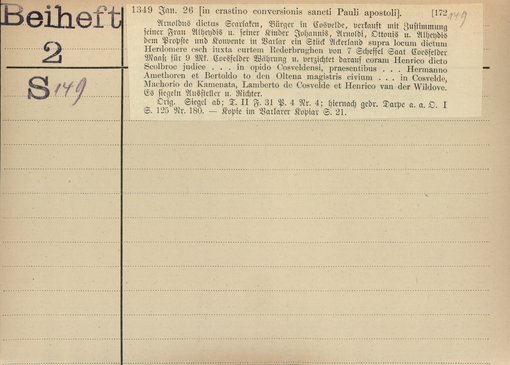 Beiheft
2
S 149
1349 Jan. 26 [in crastino conversionis sancti Pauli apostoli]. [172 149
Arnoldus dictus Scarlaken, Bürger in Cosvelde, verkauft mit Zustimmung
seiner Frau Alheydis u. seiner Kinder Johannis, Arnoldi, Ottonis u. Alheydis
dem Propste und Konvente in Varlar ein Stück Ackerland supra locum dictum
Herdomere esch iuxta curtem Rederbrughen von 7 Scheffel Saat Coesfelder
Maaß für 9 Mk. Coesfelder Währung u. verzichtet darauf coram Henrico dicto
Scolbroc judice . . . in opido Cosveldensi, praesentibus . . . Hermanno
Amethoren et Bertoldo to den Oltena magistris civium . . . in Cosvelde,
Machorio de Kamenata, Lamberto de Cosvelde et Henrico van der Wildove.
Es siegeln Aussteller u. Richter.
Orig. Siegel ab; T. II F. 31 P. 4 Nr. 4; hiernach gedr. Darpe a. a. O. I
S. 125 Nr. 180. — Kopie im Varlarer Kopiar S. 21.